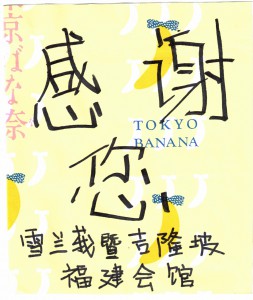 京ばな奈
感谢
TOKYO
BANANA
您
雪兰莪暨吉隆坡
福建会馆